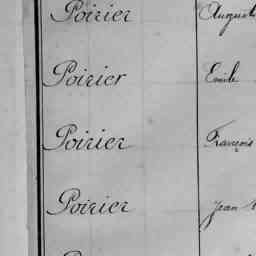 Poirier August
Poirier Emile
Poirier François
Poirier Jean